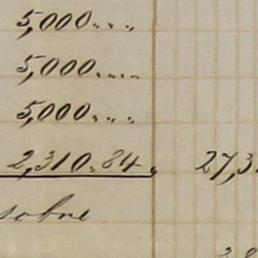 5,000....
5,000....
5,000....
2,310.84. 27,3
sobre